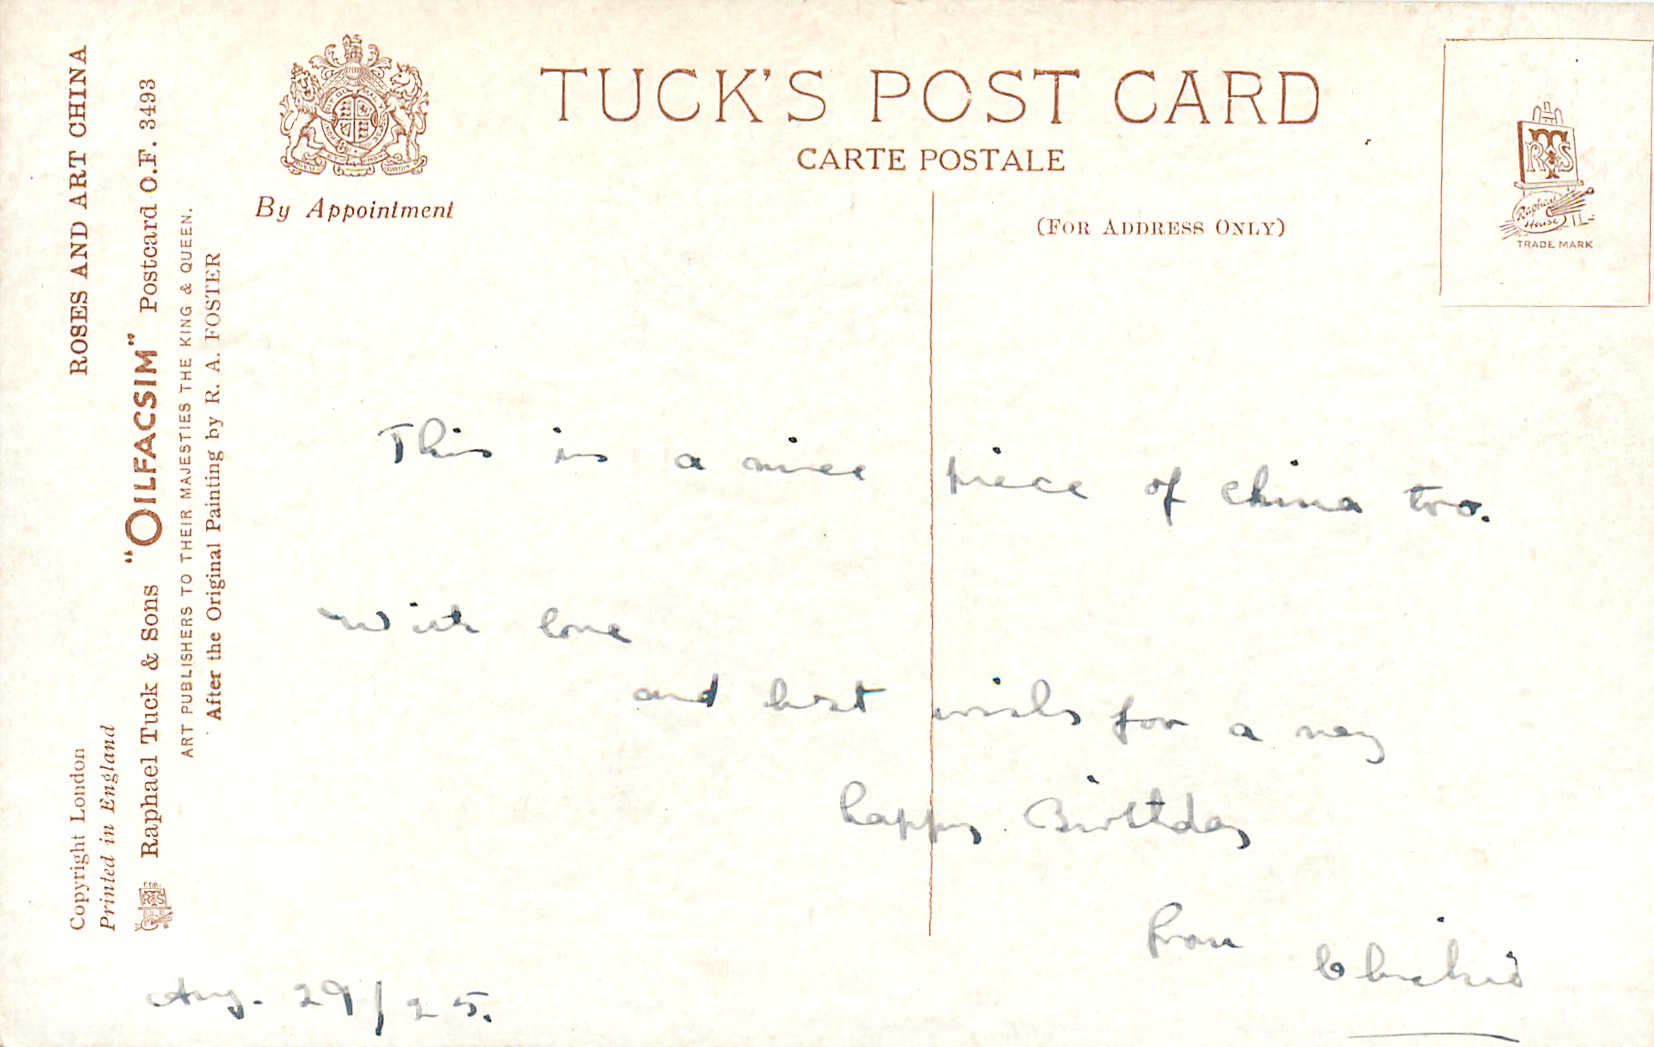 TUCK'S POST CARD
CARTE POSTALE
By Appointment
(FOR ADDRESS ONLY)
TRADE MARK
Raphael House
ROSES AND ART CHINA
Copyright London
Printed in England
Raphael Tuck & Sons "OILFACSIM" Postcard O.F. 3493
ART PUBLISHERS TO THEIR MAJESTIES THE KING & QUEEN.
After the Original Painting by R. A. FOSTER
This is a nice piece of china too.
With love
and best wishes for a very
happy Birthday
from
Aug. 29/25.